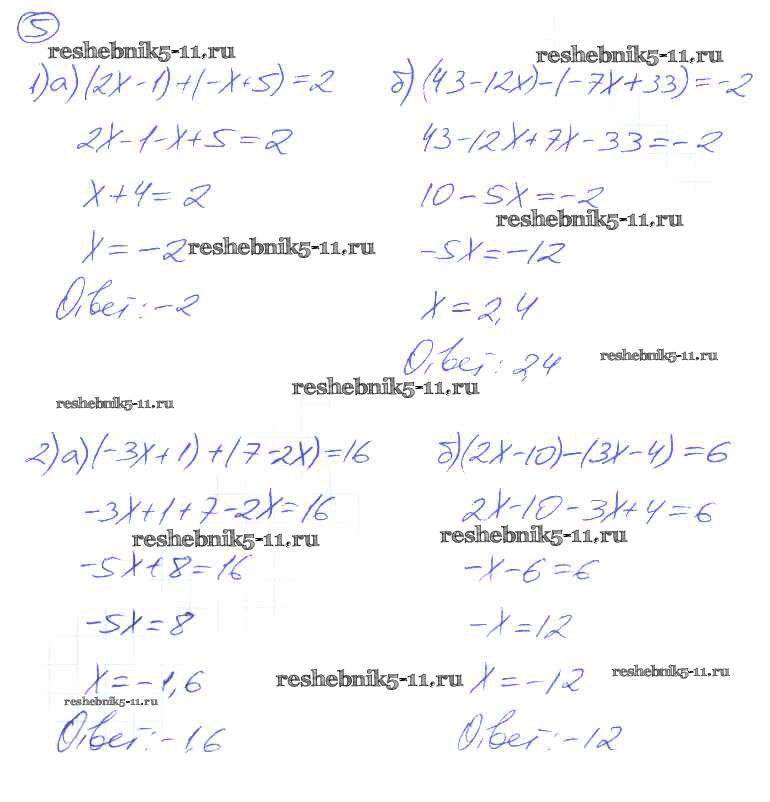 5
reshebnik5-11.ru
reshebnik5-11.ru
1) а) (2x-1)+(-x+5)=2
2x-1-x+5=2
x+4=2
x=-2
reshebnik5-11.ru
Ответ: -2
б) (43-12x)-(-7x+33)=-2
43-12x+7x-33=-2
10-5x=-2
reshebnik5-11.ru
-5x=-12
x=2,4
Ответ: 2,4
reshebnik5-11.ru
reshebnik5-11.ru
reshebnik5-11.ru
2) а) (-3x+1)+(7-2x)=16
-3x+1+7-2x=16
reshebnik5-11.ru
-5x+8=16
-5x=8
x=-1,6
reshebnik5-11.ru
reshebnik5-11.ru
Ответ: -1,6
б) (2x-10)-(3x-4)=6
2x-10-3x+4=6
reshebnik5-11.ru
-x-6=6
-x=12
x=-12
reshebnik5-11.ru
Ответ: -12